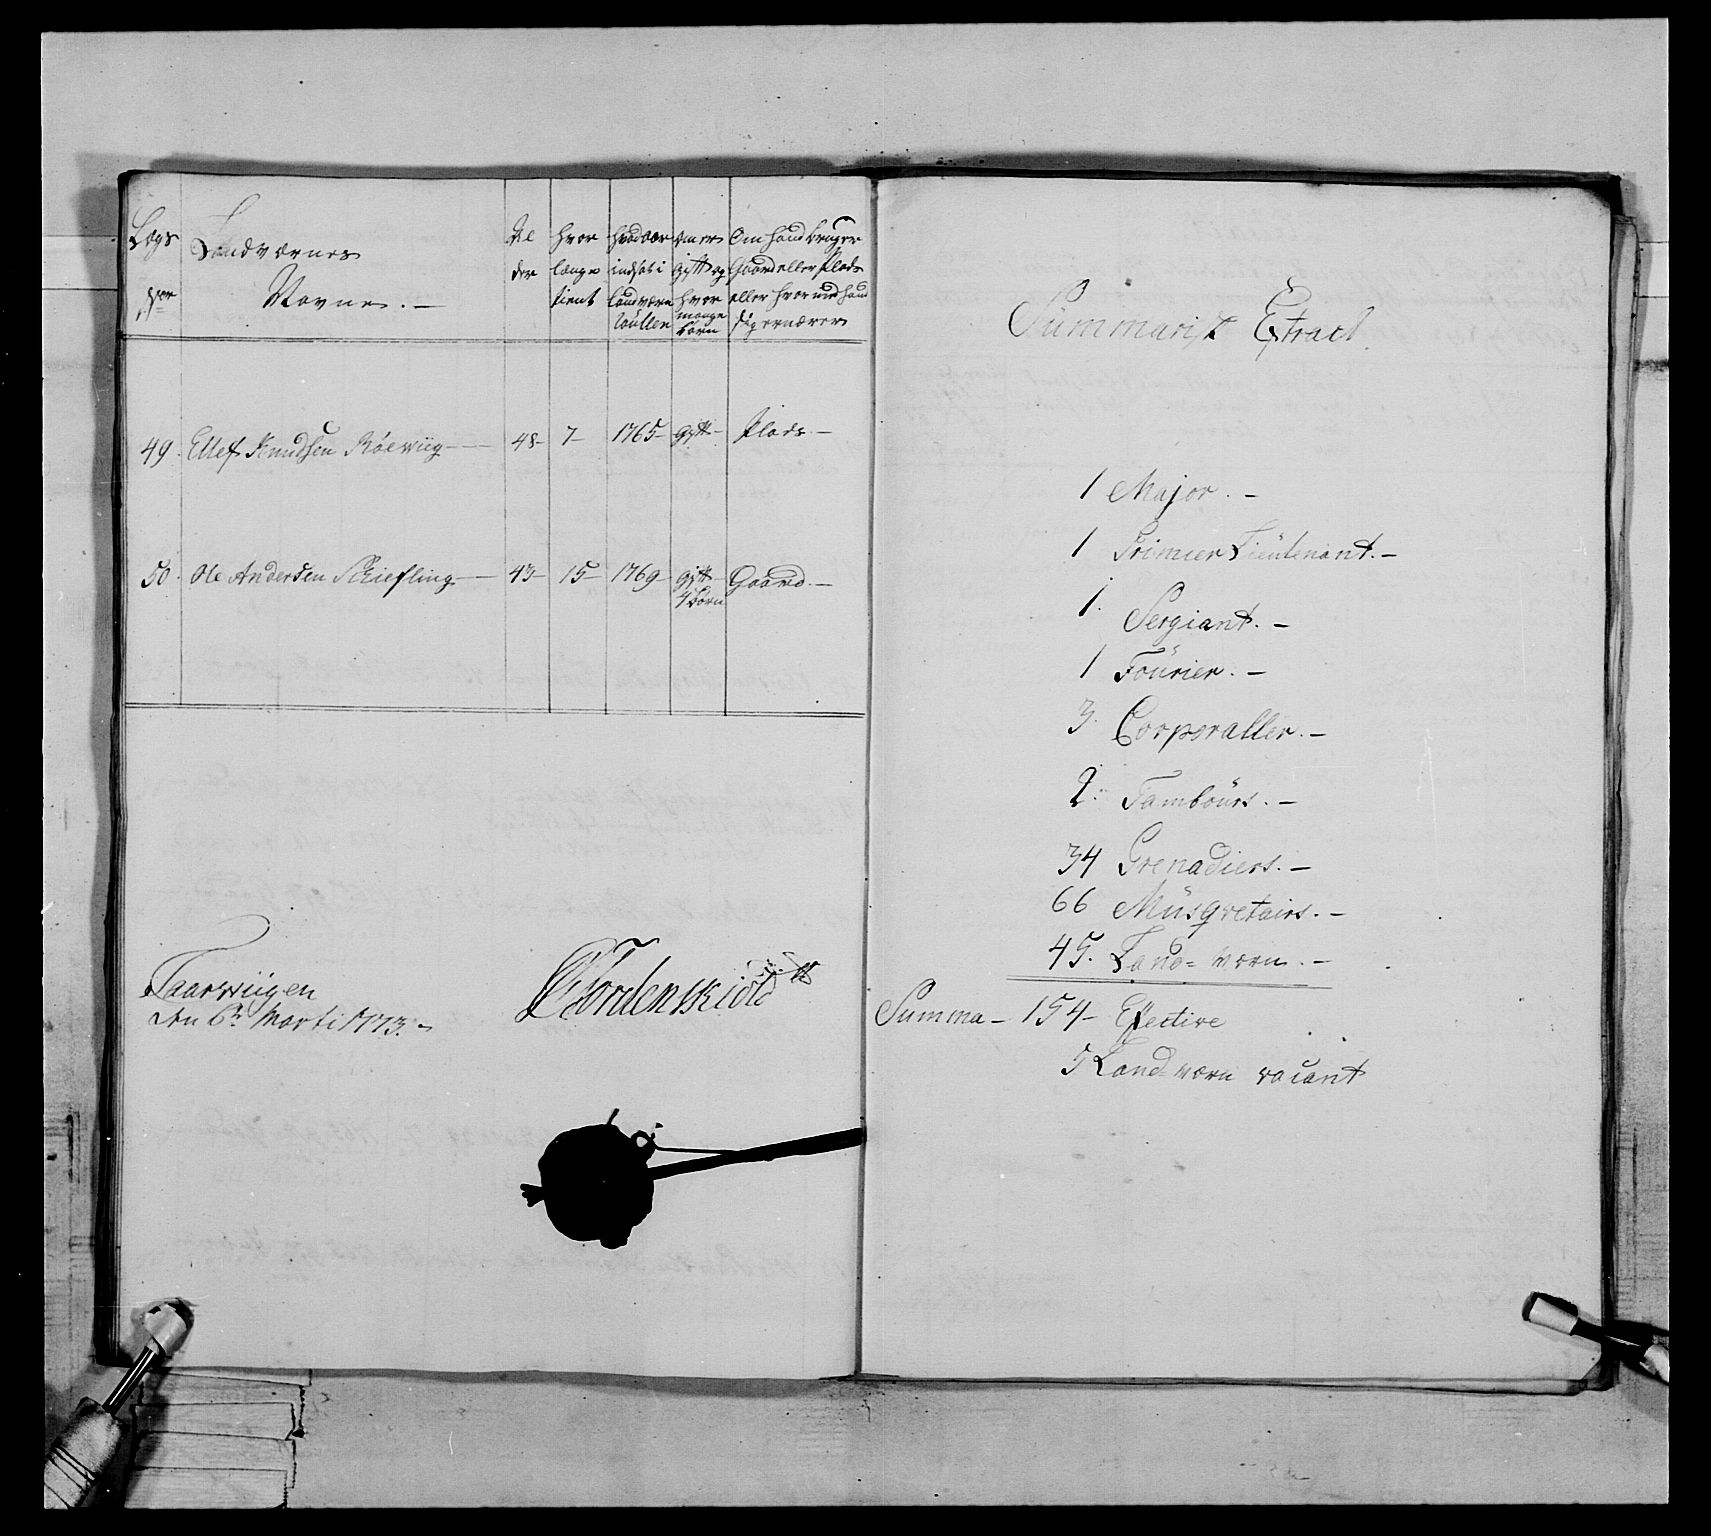 Lægs
Landværnes
Navne. —
Al
der
hvor
længe
tient
hvad aar
indsat i
Landværn
Roullen
om er
gift og
hvor
mange
børn
Om hand bruger
Gaard eller Plads
eller hvor med hand
sig ernærer
49. Ellef Knudsen Röewiig — 48 — 7 — 1765 — gift — Plads —
50. Ole Andersen Schiefling — 43 — 15 — 1769 — gift Gaard. —
4 børn
Taarwiigen
den 6te Marti 1773. —
Tordenskiold
Summarisk Extract
1 Major. —
1 Primier Lieutenant. —
1. Sergiant. —
1 Fourier. —
3. Corporaller. —
2. Tambours. —
34 Grenadiers. —
66 Musqvetairs. —
45. Land= wærn. —
Summa — 154 — Efective
5 Land=wærn vacant